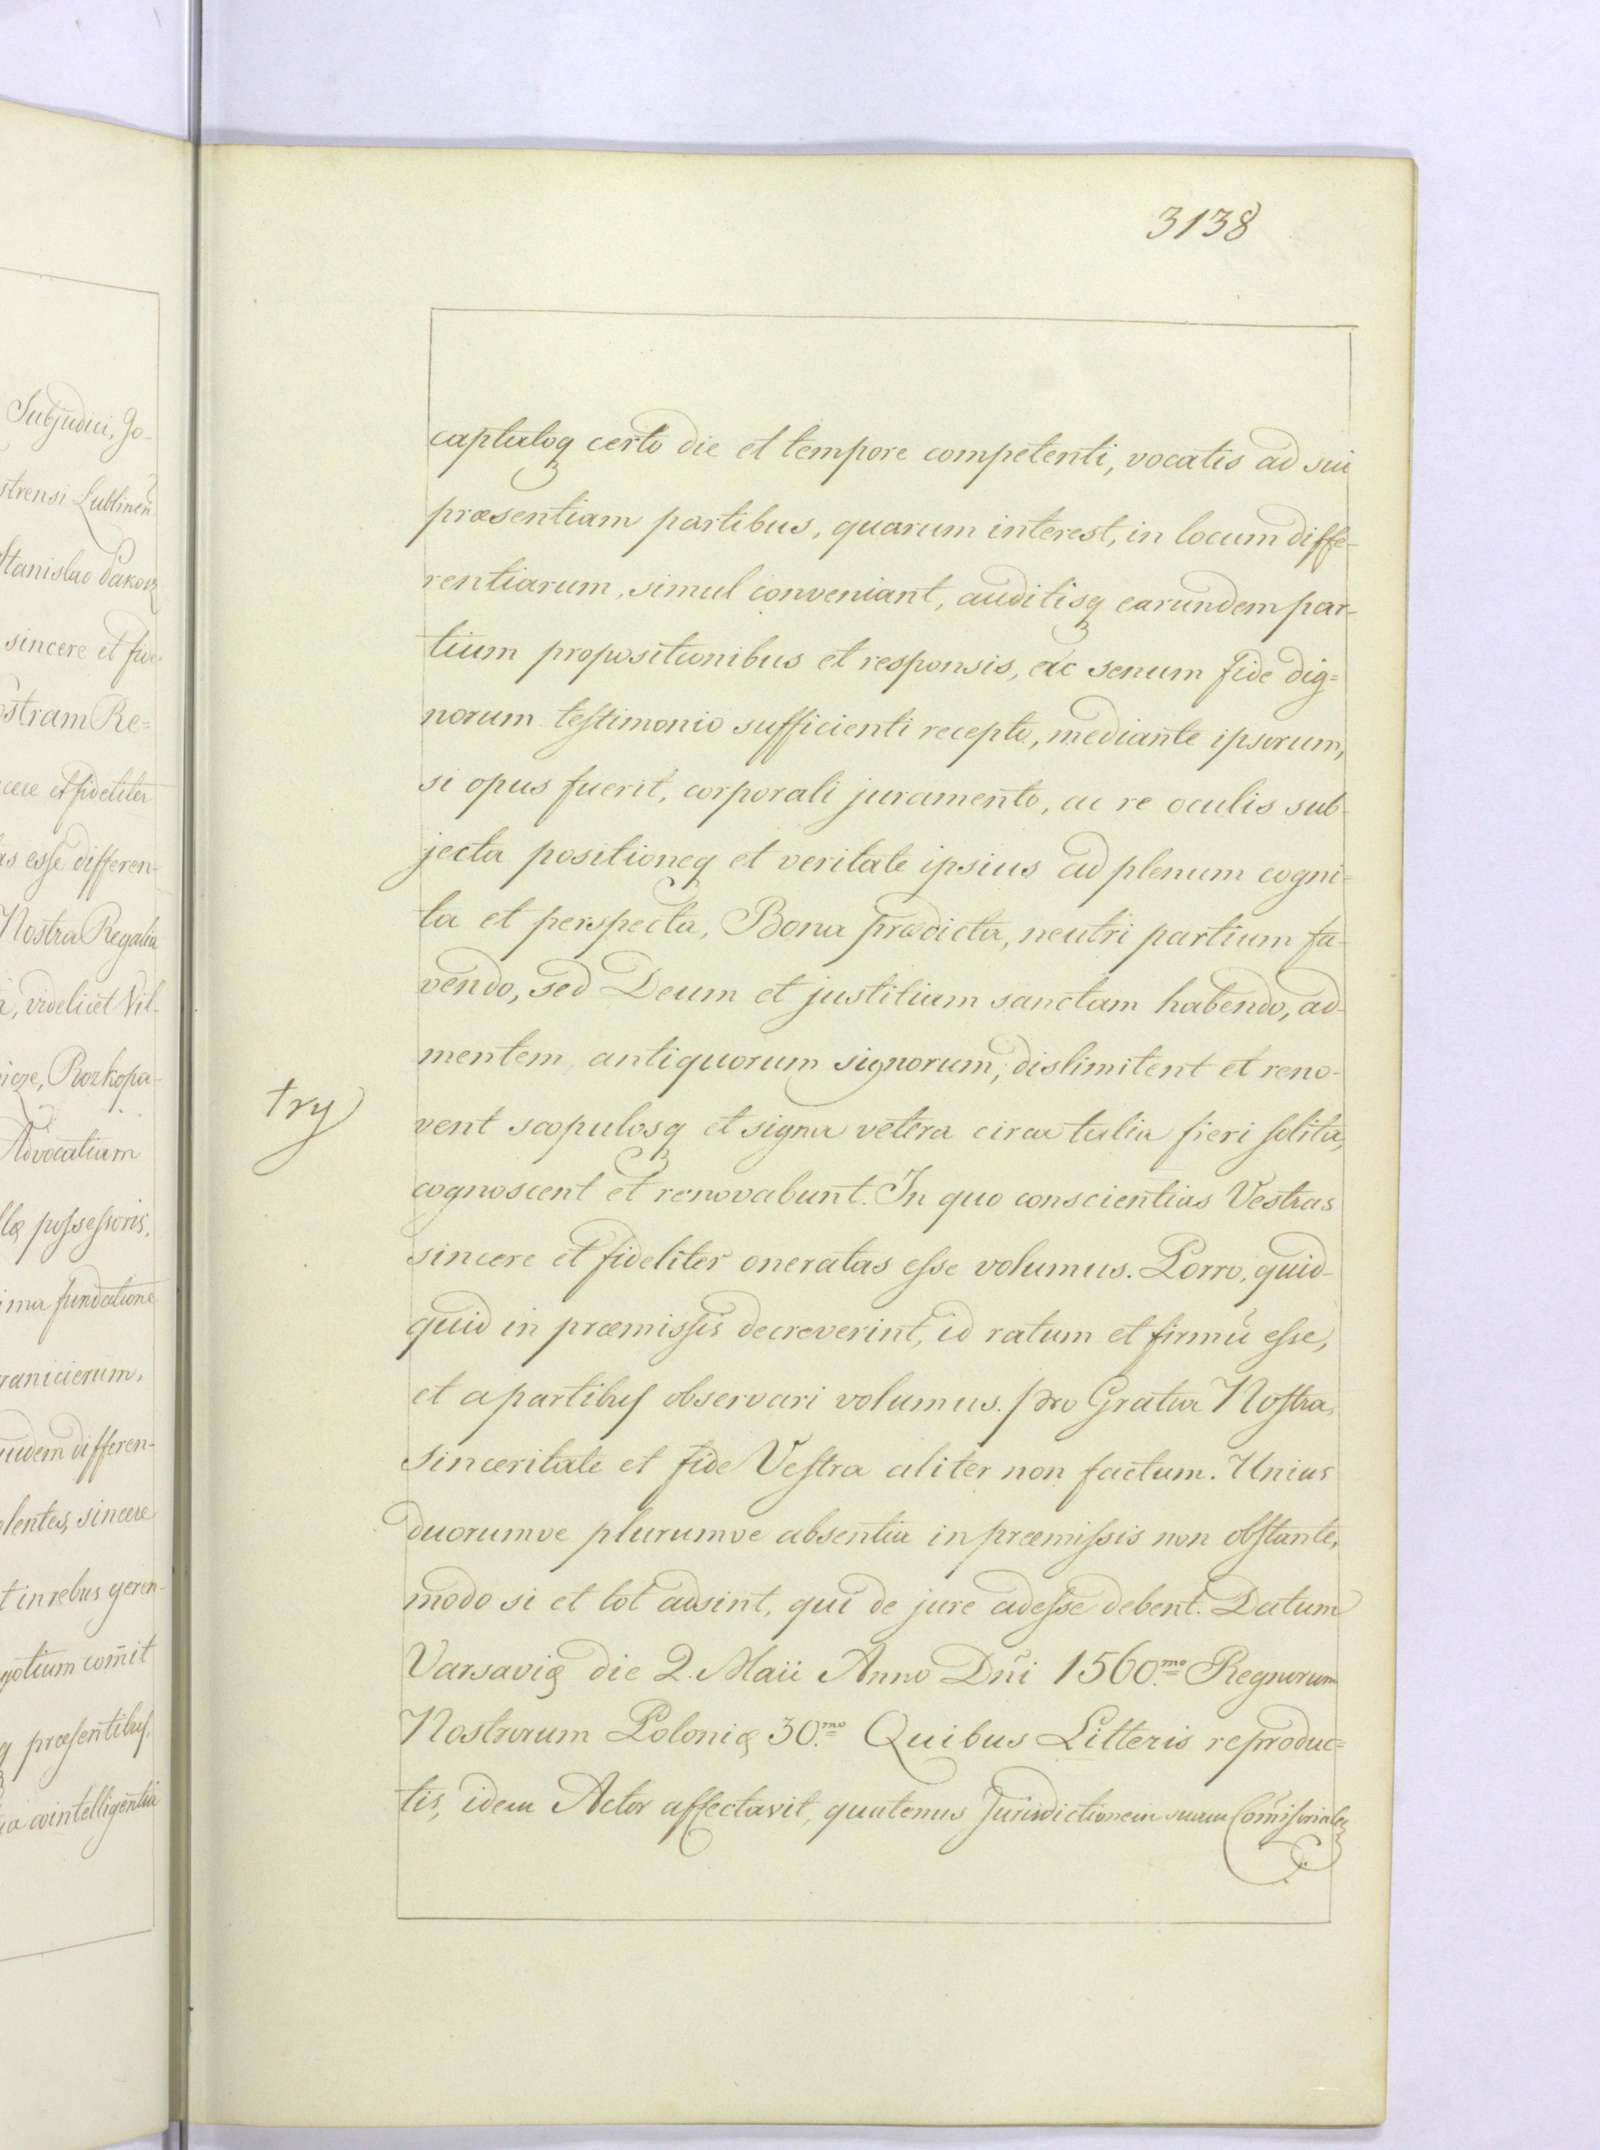 3138
Subjudici, Jo-
strensi Lublineñ
Stanislao Pakosz
sincere et fide-
ostram Re=
cere et fideliter
as esse differen-
Nostra Regalia
videlicet Vil-
Rozkopa-
Advocatiam
possessoris,
fundatione
granicierum,
differen-
sincere
t in rebus geren-
gotium com̄it
præsentibus,
cointelligentia
captaloq certo die et tempore competenti, vocatis ad sui
præsentiam partibus, quarum interest, in locum diffe-
rentiarum, simul conveniant, auditisq earundem par-
tium propositionibus et responsis, ac senum fide dig=
norum testimonio sufficienti recepto, mediante ipsorum,
si opus fuerit, corporali juramento, ac re oculis sub-
jecta positioneq et veritate ipsius ad plenum cogni=
ta et perspecta, Bona prædicta, neutri partium fa-
vendo, sed Deum et justitiam sanctam habendo, ad
mentem antiquorum signorum, dislimitent et reno-
try
vent scopulosq et signa vetera circa talia fieri solita,
cognoscent et renovabunt. In quo conscientias Vestras
sincere et fideliter oneratas esse volumus. Porro, quid-
quid in præmissis decreverint, id ratum et firmũ esse,
et a partibus observari volumus. pro Gratia Nostra,
sinceritate et fide Vestra aliter non factum. Unius
duorumve plurumve absentia in præmissis non obstante,
modo si et tot adsint, qui de jure adesse debent. Datum
Varsaviæ die 2. Maii Anno Dñi 1560.mo Regnorum
Nostrorum Poloniæ 30.mo Quibus Litteris reproduc=
tis, idem Actor affectavit, quatenus Jurisdictionem suam Com̄issorialeq